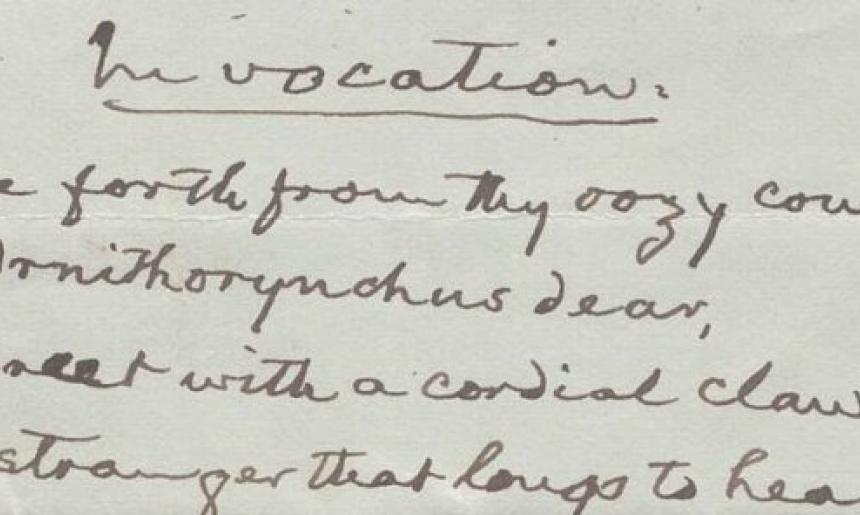 Invocation.
forth from thy oozy cou
Ornithorynchus dear,
greet with a cordial claw
stranger that longs to hea